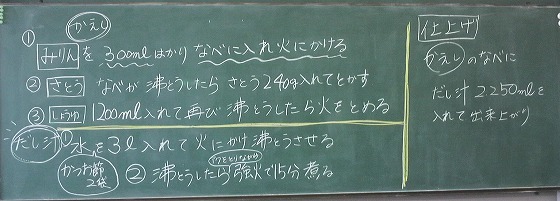 かえし
① みりんを 300mlはかり なべに入れ火にかける
② さとう なべが沸とうしたら さとう240g入れてとかす
③ しょうゆ 1200ml入れて再び沸とうしたら火をとめる
だし汁 ① 水を3l入れて火にかけ沸とうさせる
アクをとりながら
かつお節 2袋 ② 沸とうしたら強火で15分煮る
仕上げ
かえしのなべに
だし汁2250mlを
入れて出来上がり